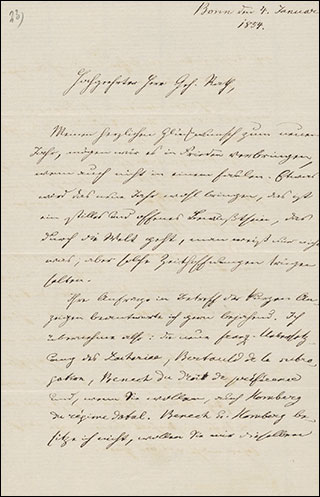 23)
Bonn den 4. Januar
1854.
Hochgeehrter Herr Geh. Rath,
Meinen herzlichen Glückwunsch zum neuen
Jahr, mögen wir es in Frieden verbringen,
wenn auch nicht in einem faulen. Etwas
wird das neue Jahr wohl bringen, das ist
ein stilles und offenes Bewußtsein, das
durch die Welt geht, man weiß nur nicht
was, aber solche Zeithoffnungen
selten.
Ihre Anfrage in Betreff der kurzen An-
zeigen beantworte ich gern bejahend. Ich
übernehme also: die neue franz. Uebersetz-
ung des Zachariae, Bertauld de la subro-
gation, Benech du droit de
und, wenn Sie wollen, auch Homberg
du régime dotal. Benech u. Homberg be-
sitze ich nicht, wollen Sie mir dieselben